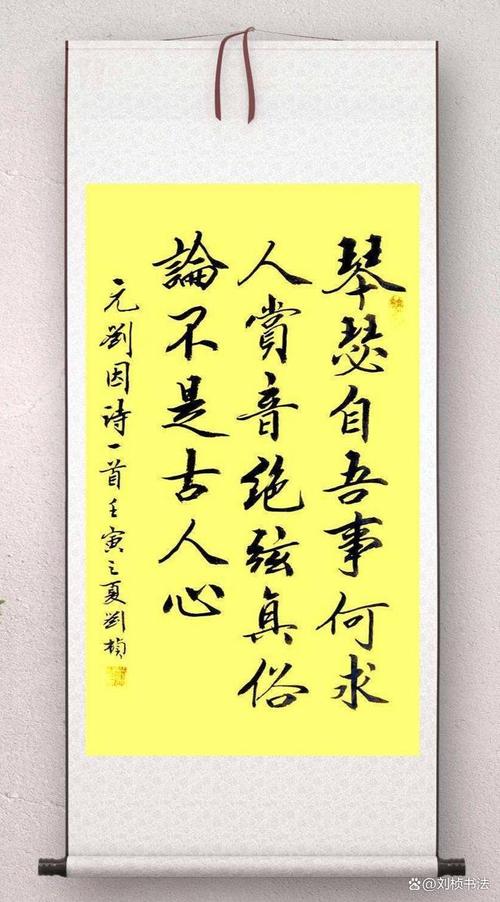 琴瑟自吾事何求
人賞音絶弦真俗
論不是古人心
元劉因诗一首壬寅之夏劉楨
@刘桢书法